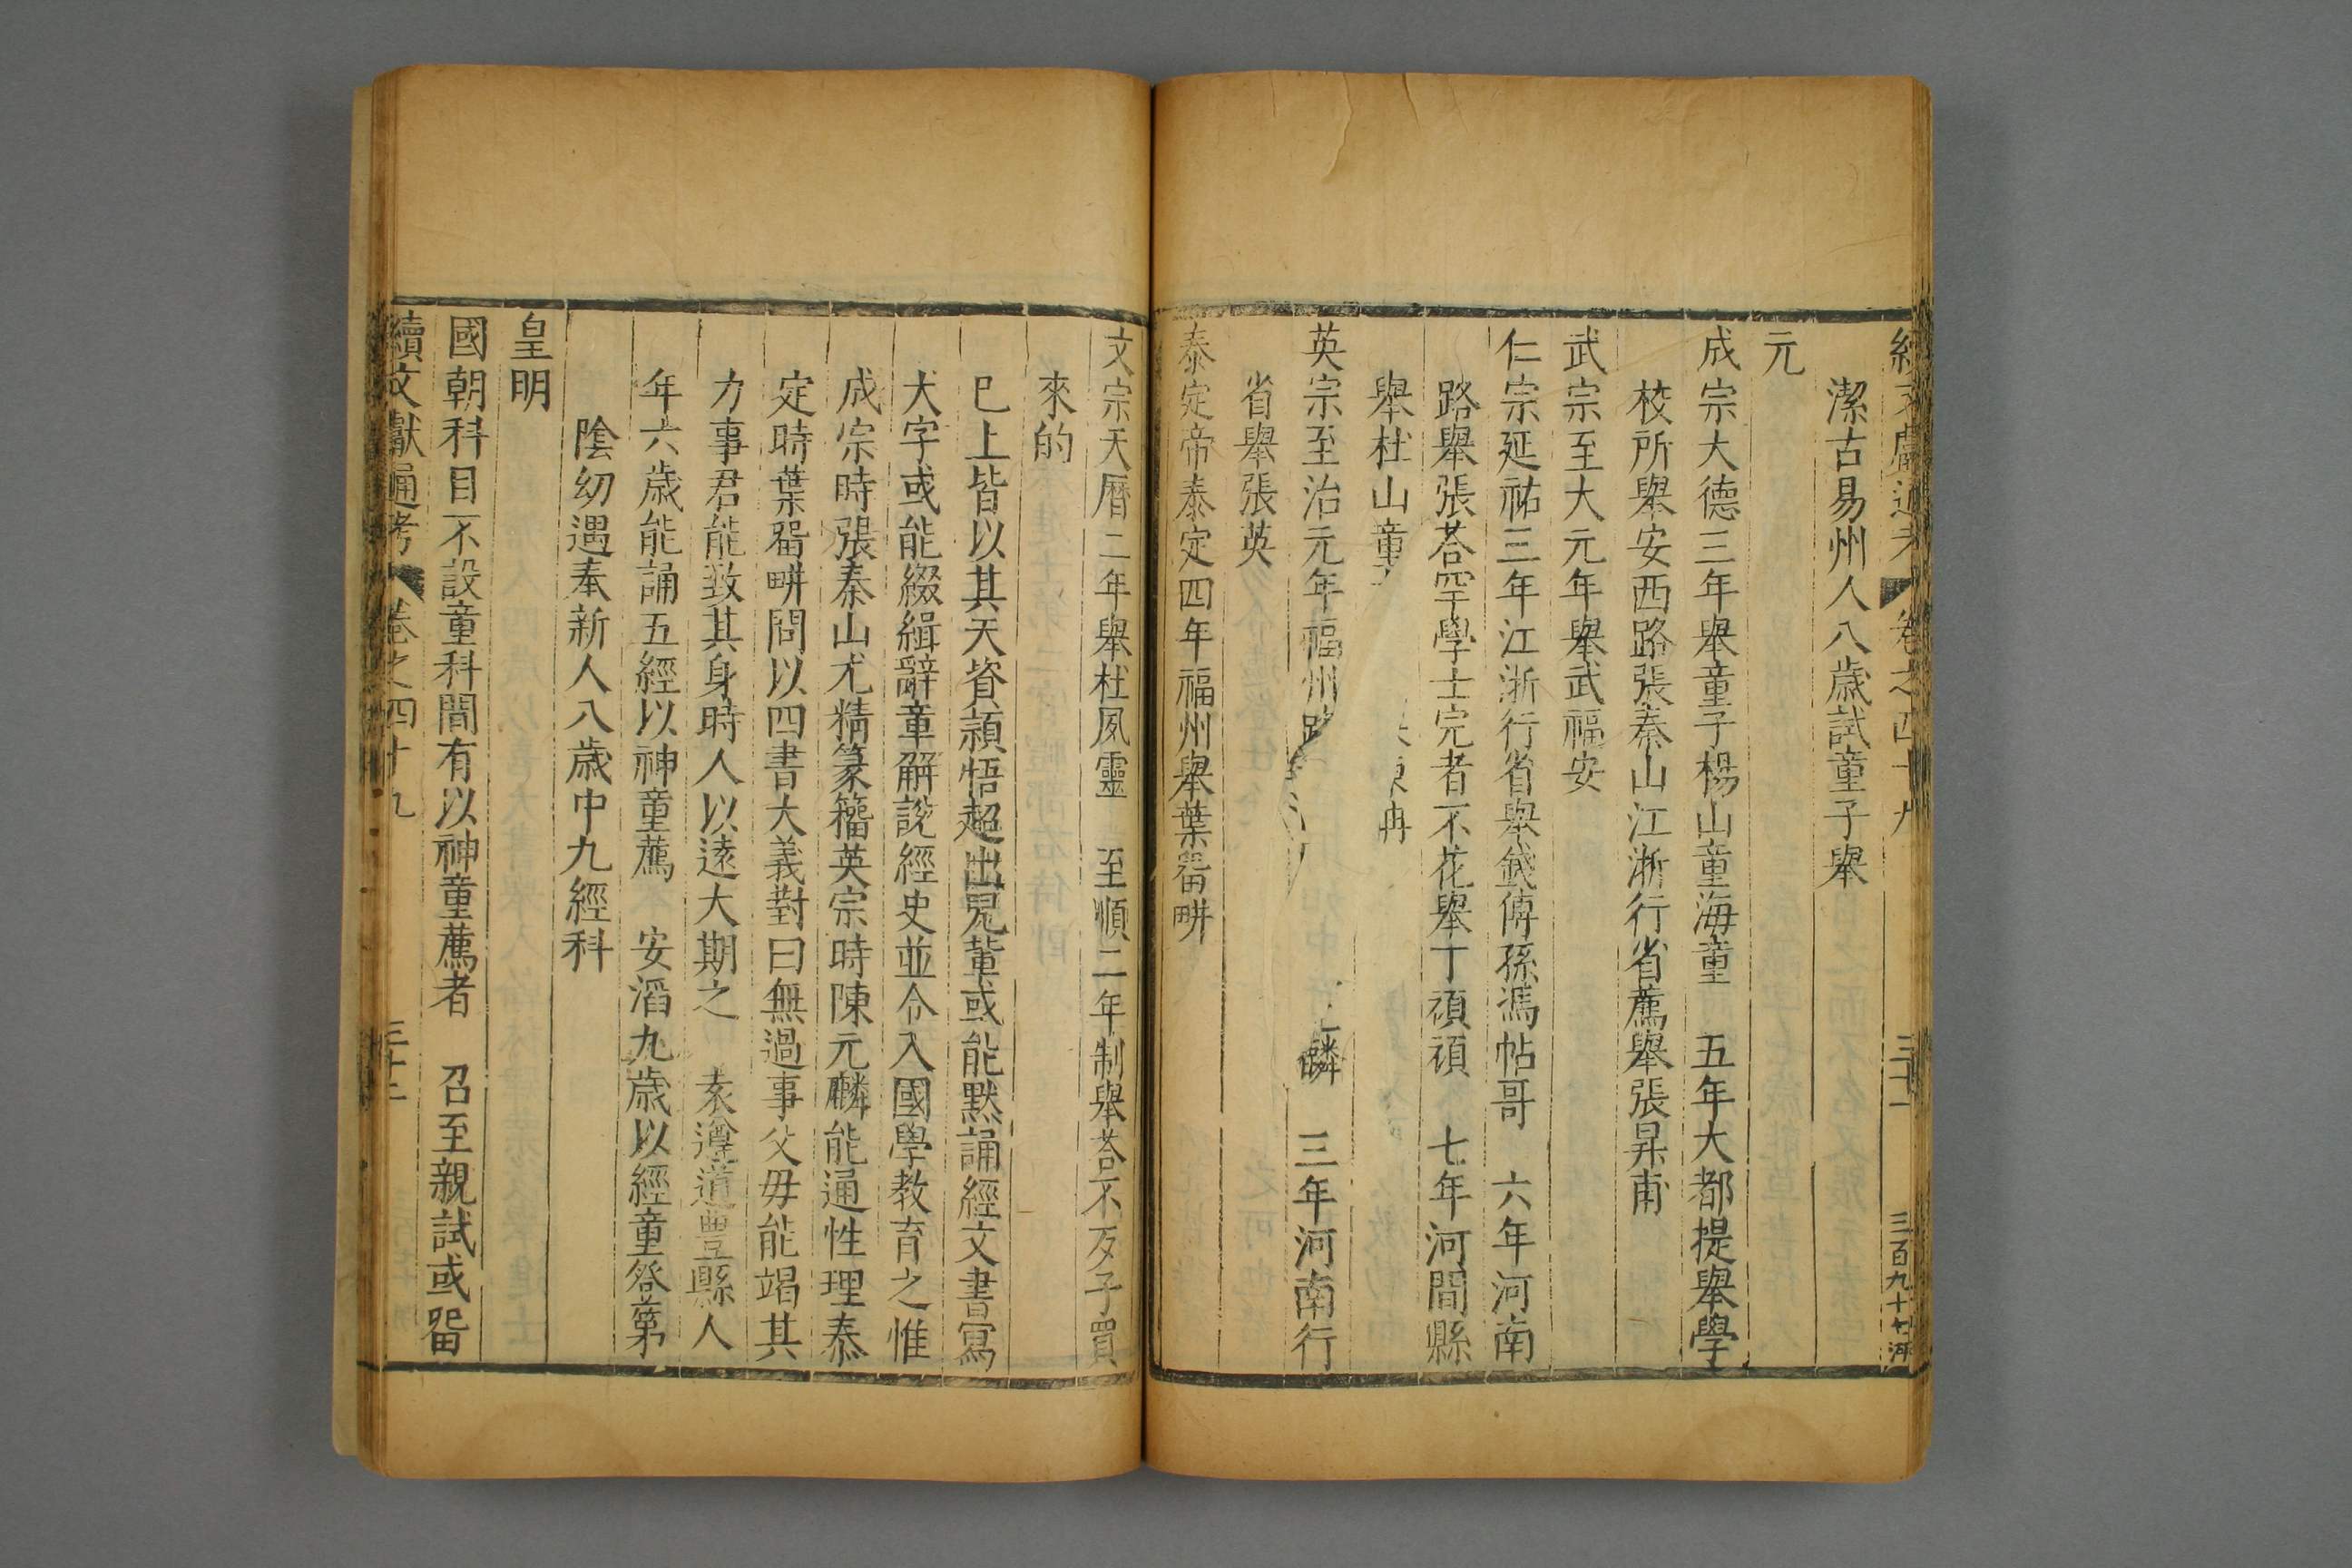 續文獻通考 卷之四十九 三十一 三百九十七
潔古易州人八歲試童子舉
元
成宗大德三年舉童子楊山童海童 五年大都提舉學
校所舉安西路張秦山江浙行省薦舉張昇甫
武宗至大元年舉武福安
仁宗延祐三年江浙行省舉錢傅孫馮帖哥 六年河南
路舉張荅罕學士完者不花舉丁頑頑 七年河間縣
舉杜山童 冉
英宗至治元年福州路 麟 三年河南行
省舉張英
泰定帝泰定四年福州舉葉留畊
文宗天曆二年舉杜夙靈 至順二年制舉荅不歹子買
來的
已上皆以其天資頴悟超出兒輩或能默誦經文書寫
大字或能綴緝辭章解說經史並令入國學教育之惟
成宗時張秦山尤精篆籀英宗時陳元麟能通性理泰
定時葉留畊問以四書大義對曰無過事父毋能竭其
力事君能致其身時人以遠大期之 袁遵道豊縣人
年六歲能誦五經以神童薦 安滔九歲以經童登第
隂幼遇奉新人八歲中九經科
皇明
國朝科目不設童科間有以神童薦者 召至親試或留
續文獻通考 卷之四十九 三十二